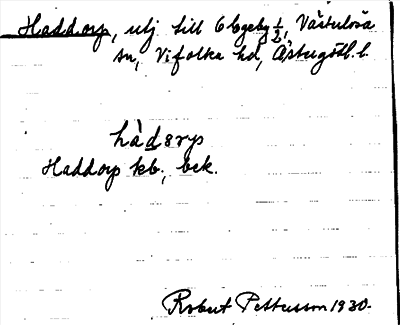 Haddorp, utj till Olgeby ½, Västerlösa
sn, Vifolka hd, Östergötl. l.
hàdɜrp
Haddorp kb., bek.
Robert Pettersson 1930.